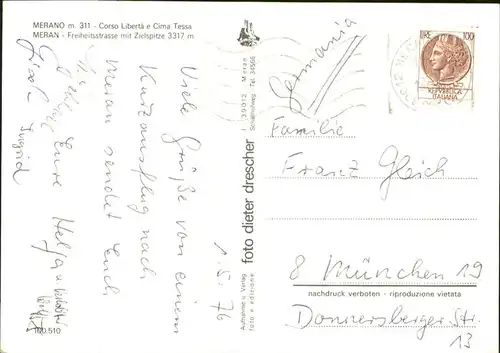 MERANO m. 311 - Corso Libertà e Cima Tessa
MERAN - Freiheitsstrasse mit Zielspitze 3317 m.
1.5.76
Viele Grüße von einem
Kurzausflug nach
Meran sendet Euch
Eure Helga u.
Gisela Ingrid
100.510
Aufnahme u. Verlag
foto e edizione
foto dieter drescher
I 39012 Meran
Tel. 34566
LIRE 100
REPVBBLICA
ITALIANA
Germania
Familie
Franz Gleich
8 München 19
nachdruck verboten - riproduzione vietata
Donnersberger Str.
13